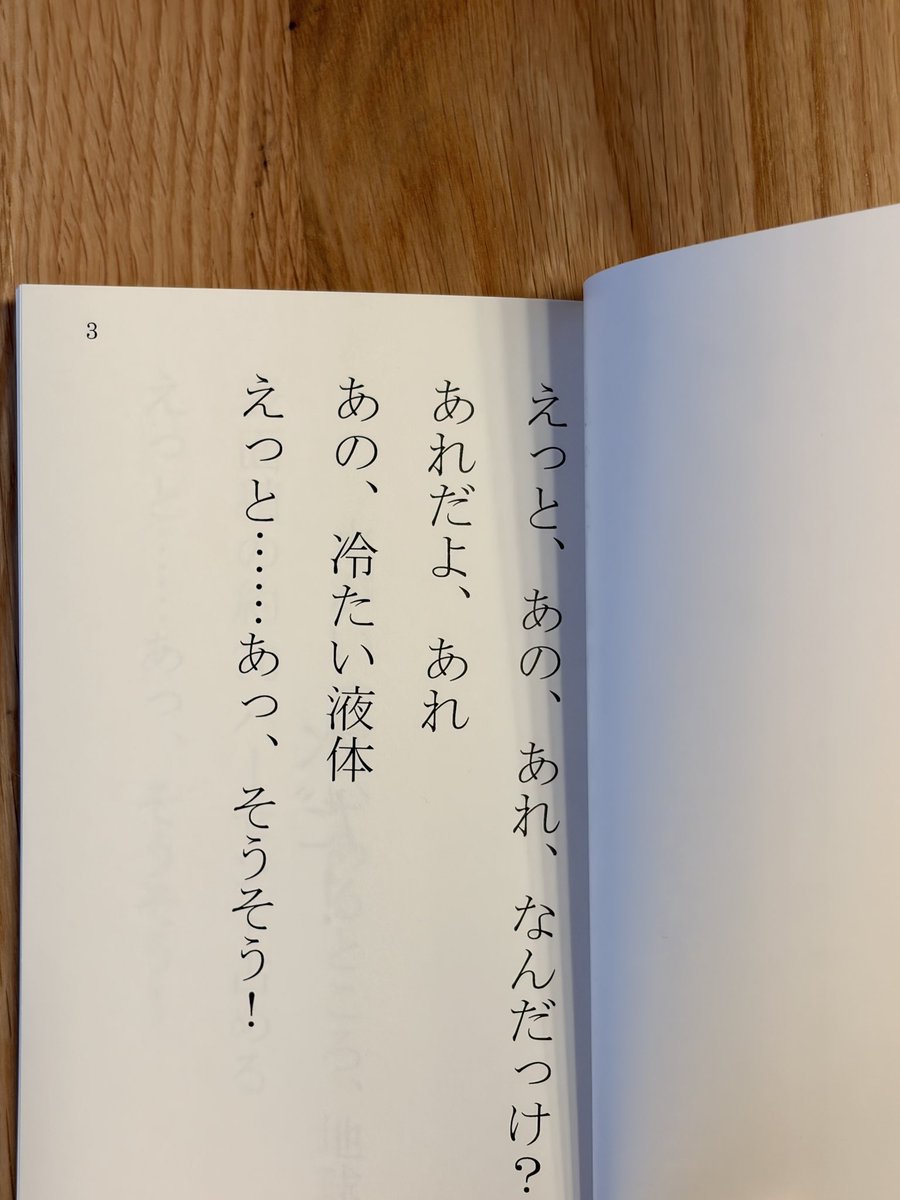 えっと、あの、あれ、なんだっけ?
あれだよ、あれ
あの、冷たい液体
えっと……あっ、そうそう!
3